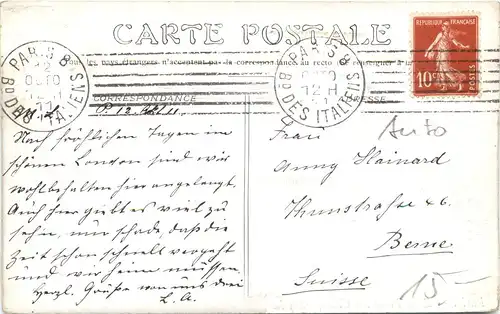 CARTE POSTALE
Tous les pays étrangers n'acceptent pas la correspondance au recto (se renseigner à la
CORRESPONDANCE
ADRESSE
PARIS 8
Bd DES ITALIENS
PARIS 8
12 H
Bd DES ITALIENS
REPUBLIQUE FRANÇAISE
10
POSTES
P. 12.
Nach fröhlichen Tagen im
schönen London sind wir
wohlbehalten hier angelangt.
Auch hier giebt es viel zu
sehen, nur schade, daß die
Zeit schon schnell vergeht
und wir heim müssen.
Herzl. Grüße von uns drei
L. A.
Auto
Frau
Anny Hainard
Thunstraße 46.
Berne
Suisse
15.-